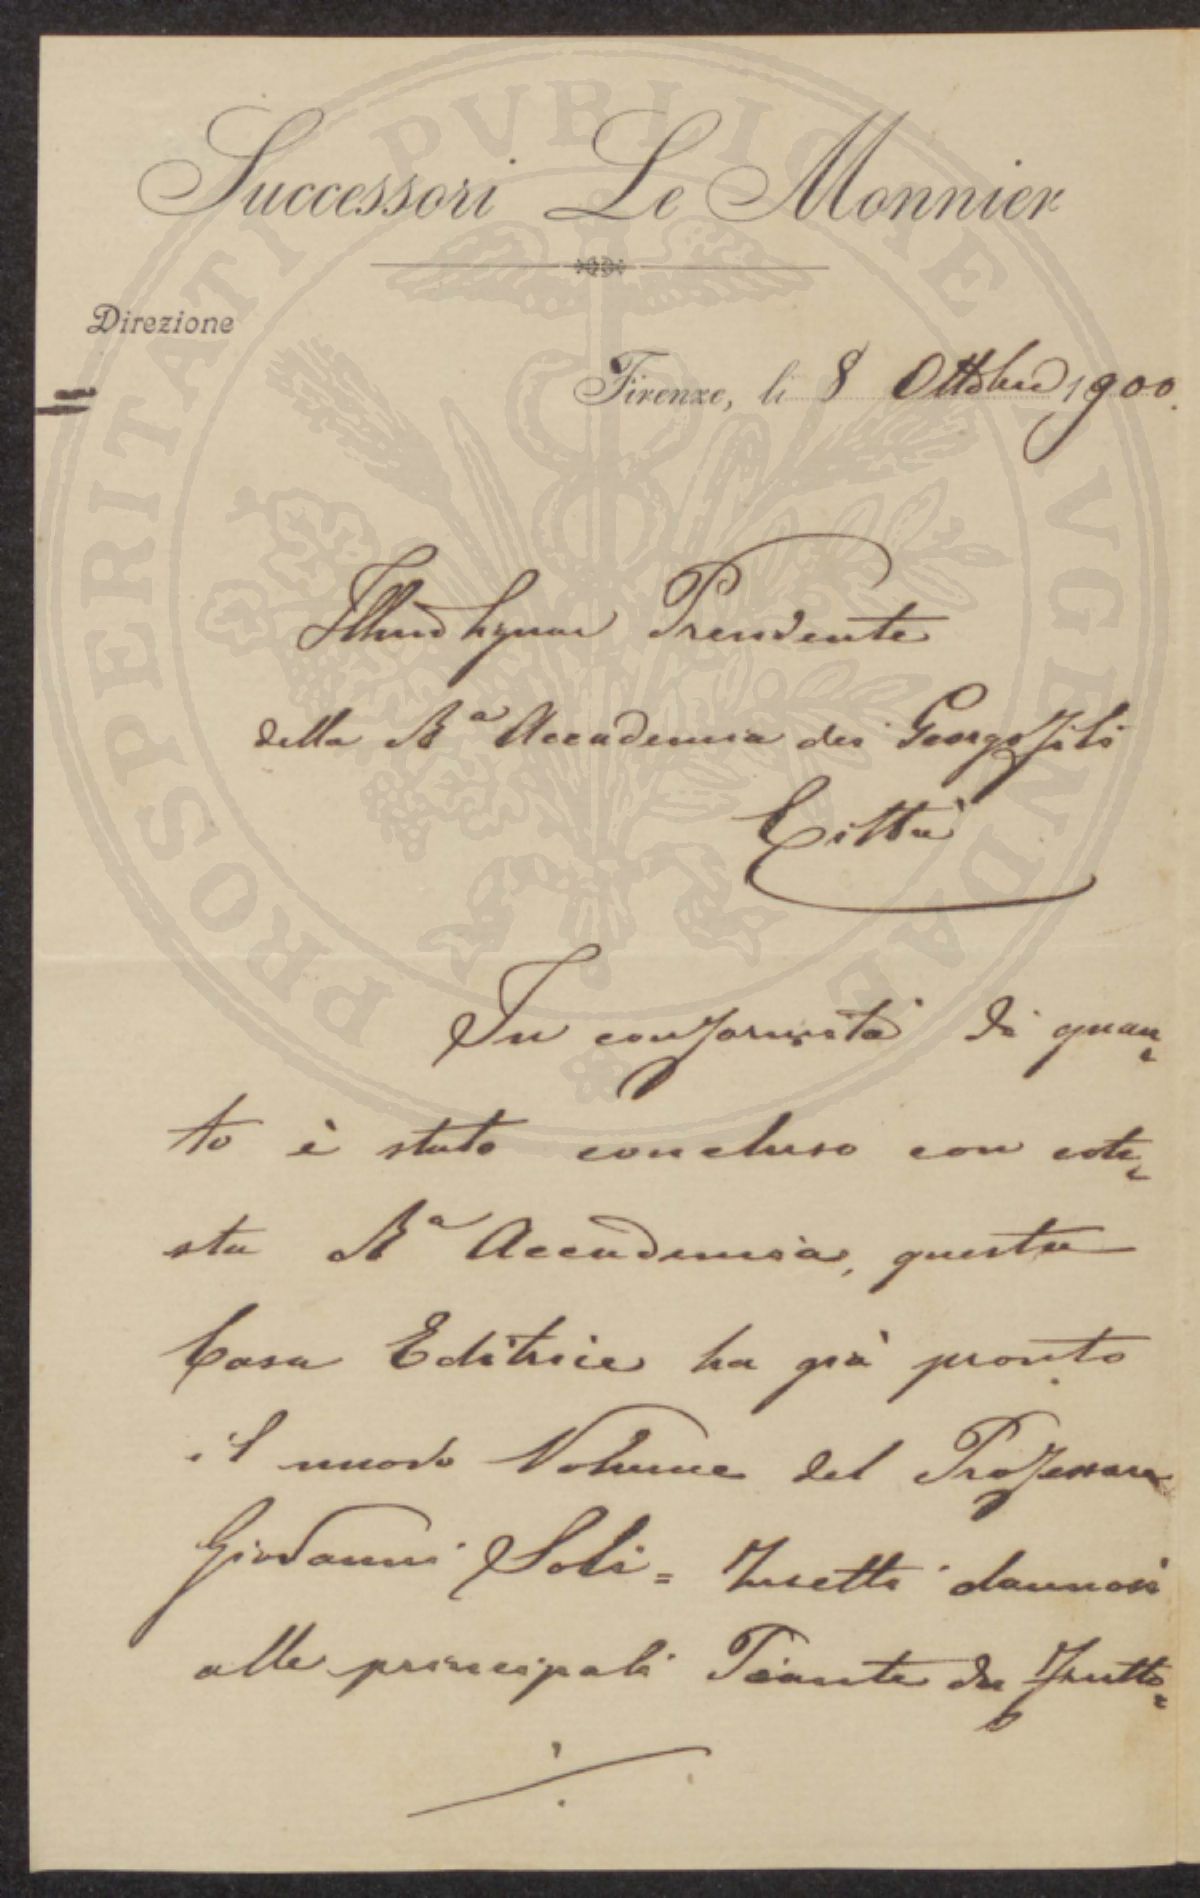 Successori Le Monnier
Direzione
Firenze, li 8 Ottobre 1900.
Illmo Signor Presidente
della Rª Accademia dei Georgofili
Città
In conformità di quan-
to è stato concluso con cote-
sta Rª Accademia, questa
Casa Editrice ha già pronto
il nuovo Volume del Professore
Giovanni Soli = Insetti dannosi
alle principali Piante da frutto =
PROSPERITATI PVBLICAE AVGENDAE